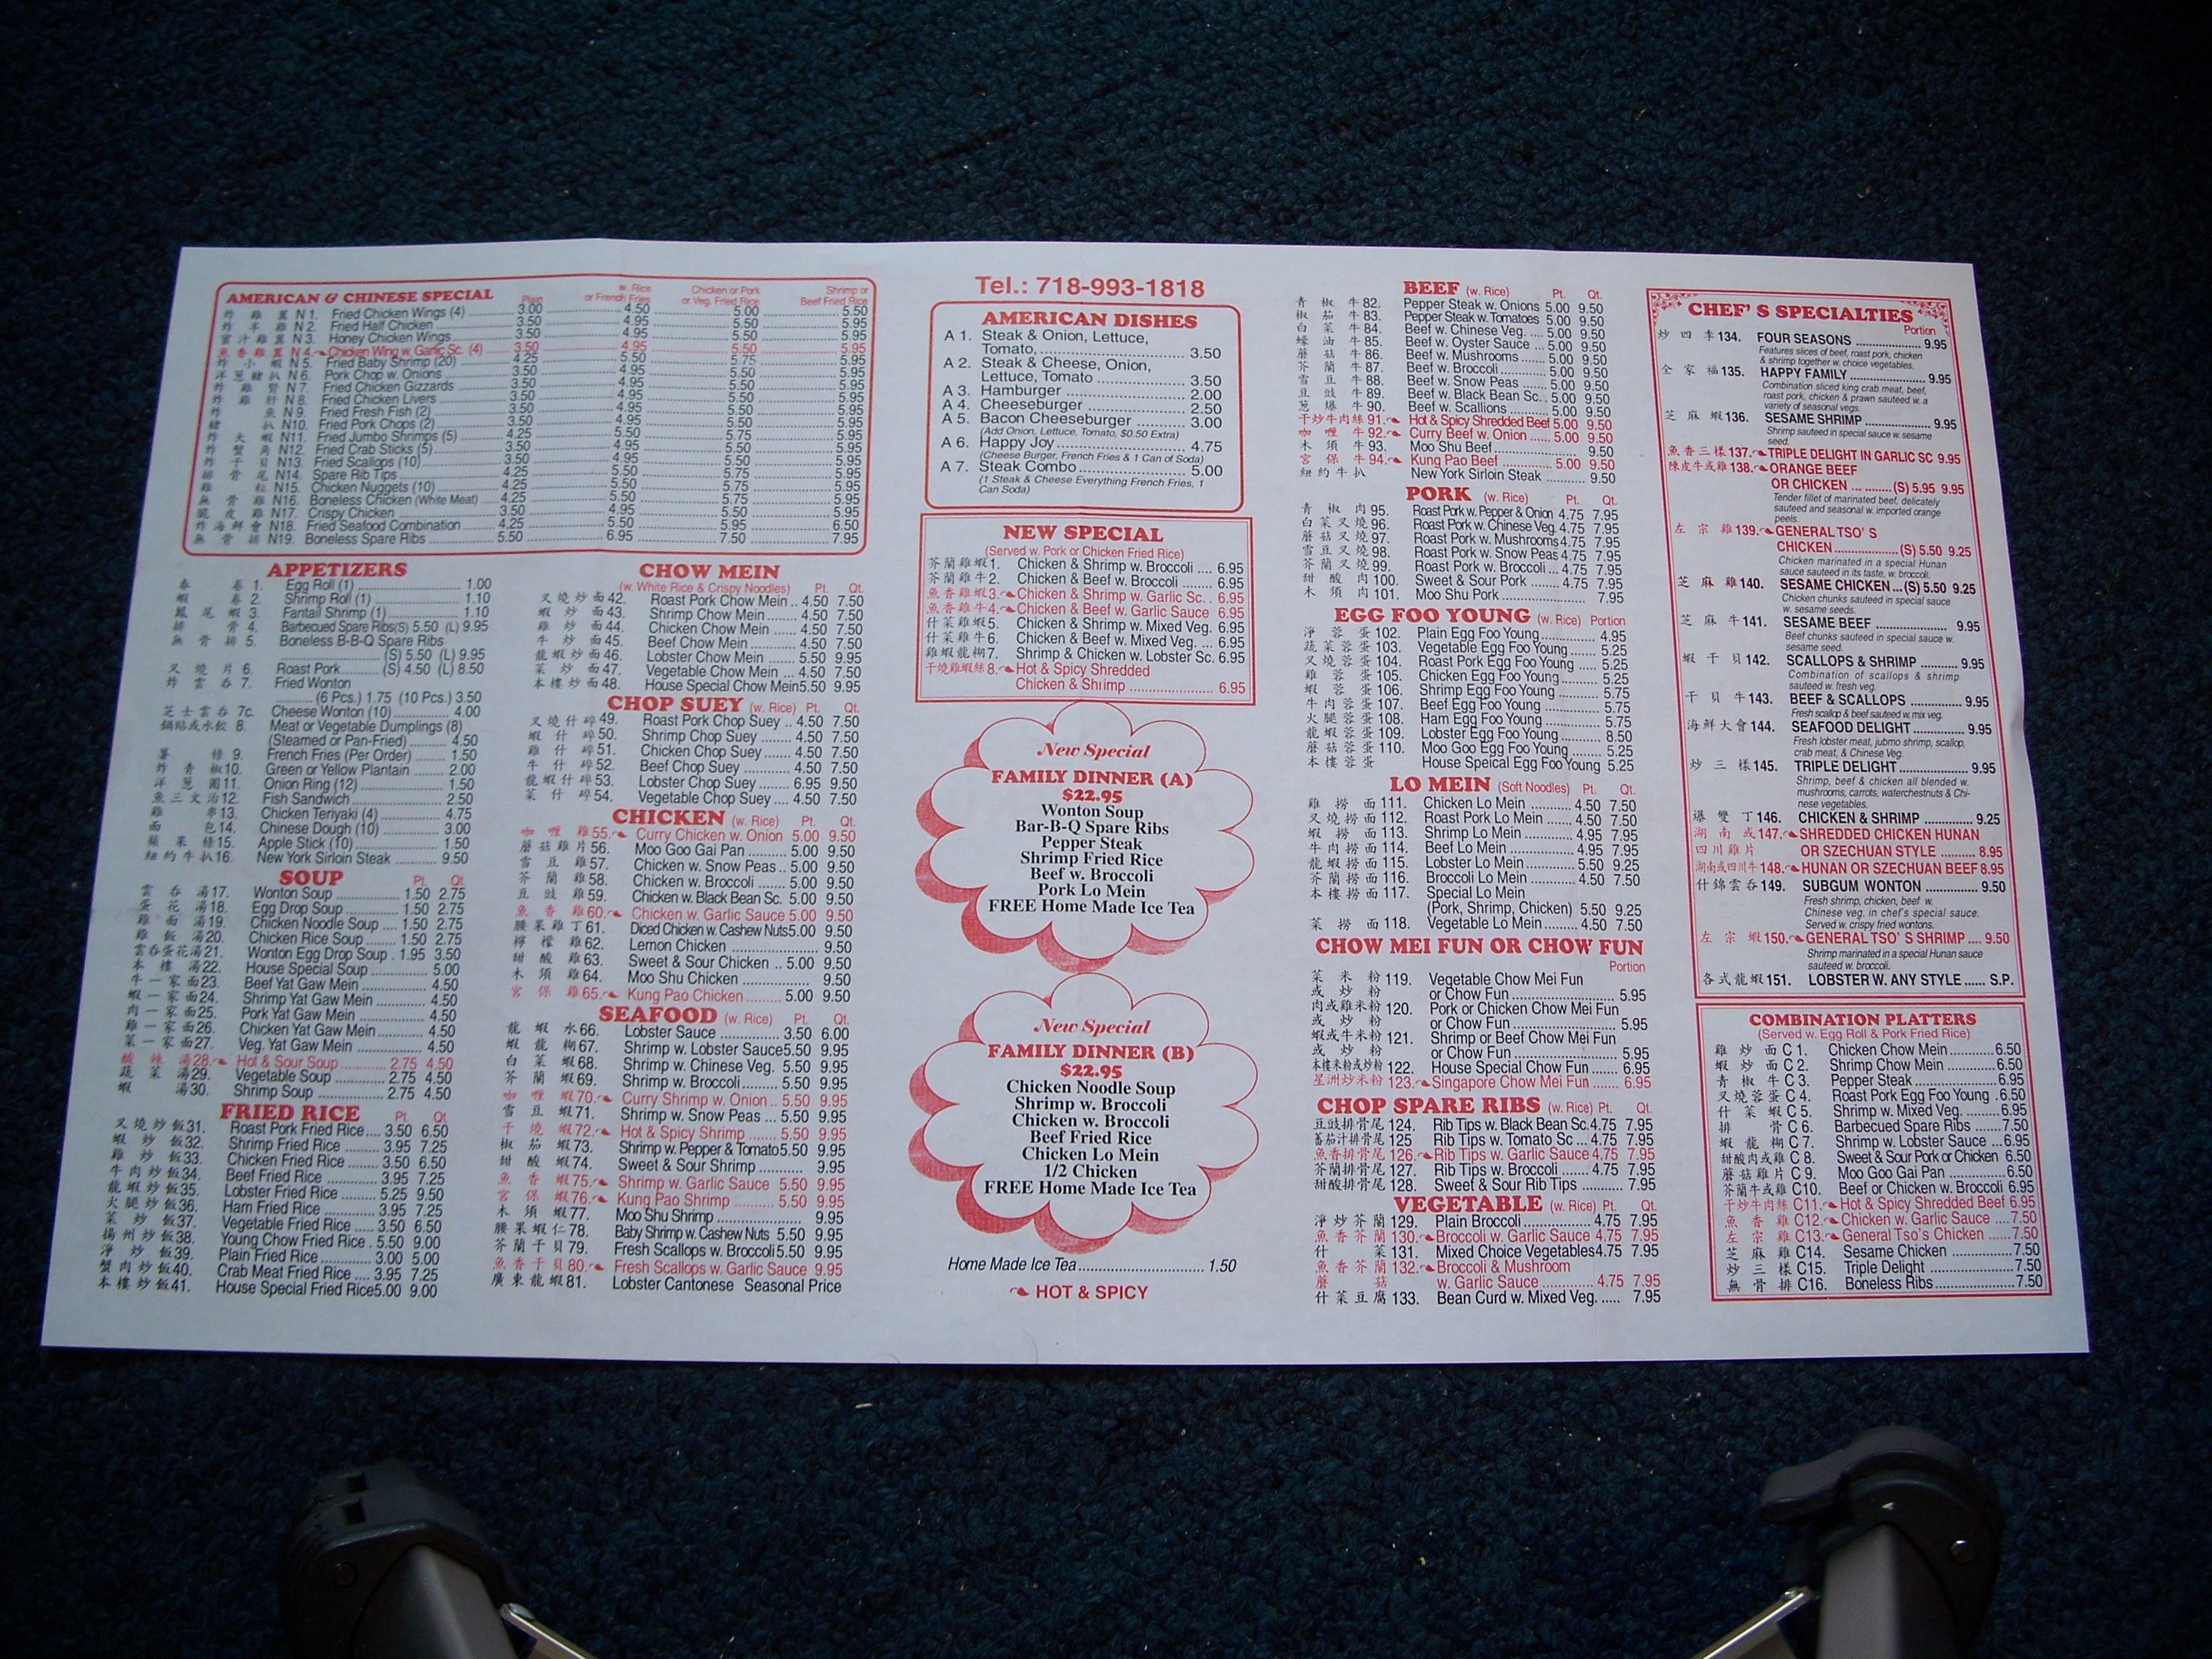 AMERICAN & CHINESE SPECIAL
Plain
w. Rice or French Fries
Chicken or Pork or Veg. Fried Rice
Shrimp or Beef Fried Rice
炸雞翼 N 1. Fried Chicken Wings (4) 3.00 4.50 5.00 5.50
炸半雞 N 2. Fried Half Chicken 3.50 4.95 5.50 5.95
蜜汁雞翼 N 3. Honey Chicken Wings 3.50 4.95 5.50 5.95
魚香雞翼 N 4. Chicken Wing w. Garlic Sc. (4) 3.50 4.95 5.50 5.95
炸小蝦 N 5. Fried Baby Shrimp (20) 4.25 5.50 5.75 5.95
洋葱豬扒 N 6. Pork Chop w. Onions 3.50 4.95 5.50 5.95
炸雞腎 N 7. Fried Chicken Gizzards 3.50 4.95 5.50 5.95
炸雞肝 N 8. Fried Chicken Livers 3.50 4.95 5.50 5.95
炸魚 N 9. Fried Fresh Fish (2) 3.50 4.95 5.50 5.95
豬扒 N10. Fried Pork Chops (2) 3.50 4.95 5.50 5.95
炸大蝦 N11. Fried Jumbo Shrimps (5) 4.25 5.50 5.75 5.95
炸蟹角 N12. Fried Crab Sticks (5) 3.50 4.95 5.50 5.95
炸干貝 N13. Fried Scallops (10) 3.50 4.95 5.50 5.95
排骨尾 N14. Spare Rib Tips 4.25 5.50 5.75 5.95
雞粒 N15. Chicken Nuggets (10) 4.25 5.50 5.75 5.95
無骨雞 N16. Boneless Chicken (White Meat) 4.25 5.50 5.75 5.95
脆皮雞 N17. Crispy Chicken 3.50 4.95 5.50 5.95
炸海鮮會 N18. Fried Seafood Combination 4.25 5.50 5.95 6.50
無骨排 N19. Boneless Spare Ribs 5.50 6.95 7.50 7.95
APPETIZERS
春卷 1. Egg Roll (1) 1.00
蝦卷 2. Shrimp Roll (1) 1.10
鳳尾蝦 3. Fantail Shrimp (1) 1.10
排骨 4. Barbecued Spare Ribs(S) 5.50 (L) 9.95
無骨排 5. Boneless B-B-Q Spare Ribs
(S) 5.50 (L) 9.95
叉燒片 6. Roast Pork (S) 4.50 (L) 8.50
炸雲吞 7. Fried Wonton
(6 Pcs.) 1.75 (10 Pcs.) 3.50
芝士雲吞 7c. Cheese Wonton (10) 4.00
鍋貼或水餃 8. Meat or Vegetable Dumplings (8)
(Steamed or Pan-Fried) 4.50
薯條 9. French Fries (Per Order) 1.50
炸青椒 10. Green or Yellow Plantain 2.00
洋葱圈 11. Onion Ring (12) 1.50
魚三文治 12. Fish Sandwich 2.50
雞串 13. Chicken Teriyaki (4) 4.75
面包 14. Chinese Dough (10) 3.00
蘋果條 15. Apple Stick (10) 1.50
紐約牛扒 16. New York Sirloin Steak 9.50
SOUP Pt. Qt.
雲吞湯 17. Wonton Soup 1.50 2.75
蛋花湯 18. Egg Drop Soup 1.50 2.75
雞面湯 19. Chicken Noodle Soup 1.50 2.75
雞飯湯 20. Chicken Rice Soup 1.50 2.75
雲吞蛋花湯 21. Wonton Egg Drop Soup 1.95 3.50
本樓湯 22. House Special Soup 5.00
牛一家面 23. Beef Yat Gaw Mein 4.50
蝦一家面 24. Shrimp Yat Gaw Mein 4.50
肉一家面 25. Pork Yat Gaw Mein 4.50
雞一家面 26. Chicken Yat Gaw Mein 4.50
菜一家面 27. Veg. Yat Gaw Mein 4.50
酸辣湯 28. Hot & Sour Soup 2.75 4.50
蔬菜湯 29. Vegetable Soup 2.75 4.50
蝦湯 30. Shrimp Soup 2.75 4.50
FRIED RICE Pt. Qt.
叉燒炒飯 31. Roast Pork Fried Rice 3.50 6.50
蝦炒飯 32. Shrimp Fried Rice 3.95 7.25
雞炒飯 33. Chicken Fried Rice 3.50 6.50
牛肉炒飯 34. Beef Fried Rice 3.95 7.25
龍蝦炒飯 35. Lobster Fried Rice 5.25 9.50
火腿炒飯 36. Ham Fried Rice 3.95 7.25
菜炒飯 37. Vegetable Fried Rice 3.50 6.50
揚州炒飯 38. Young Chow Fried Rice 5.50 9.00
淨炒飯 39. Plain Fried Rice 3.00 5.00
蟹肉炒飯 40. Crab Meat Fried Rice 3.95 7.25
本樓炒飯 41. House Special Fried Rice 5.00 9.00
CHOW MEIN
(w. White Rice & Crispy Noodles) Pt. Qt.
叉燒炒面 42. Roast Pork Chow Mein 4.50 7.50
蝦炒面 43. Shrimp Chow Mein 4.50 7.50
雞炒面 44. Chicken Chow Mein 4.50 7.50
牛炒面 45. Beef Chow Mein 4.50 7.50
龍蝦炒面 46. Lobster Chow Mein 5.50 9.95
菜炒面 47. Vegetable Chow Mein 4.50 7.50
本樓炒面 48. House Special Chow Mein 5.50 9.95
CHOP SUEY (w. Rice) Pt. Qt.
叉燒什碎 49. Roast Pork Chop Suey 4.50 7.50
蝦什碎 50. Shrimp Chop Suey 4.50 7.50
雞什碎 51. Chicken Chop Suey 4.50 7.50
牛什碎 52. Beef Chop Suey 4.50 7.50
龍蝦什碎 53. Lobster Chop Suey 6.95 9.50
菜什碎 54. Vegetable Chop Suey 4.50 7.50
CHICKEN (w. Rice) Pt. Qt.
咖喱雞 55. Curry Chicken w. Onion 5.00 9.50
蘑菇雞片 56. Moo Goo Gai Pan 5.00 9.50
雪豆雞 57. Chicken w. Snow Peas 5.00 9.50
芥蘭雞 58. Chicken w. Broccoli 5.00 9.50
豆豉雞 59. Chicken w. Black Bean Sc. 5.00 9.50
魚香雞 60. Chicken w. Garlic Sauce 5.00 9.50
腰果雞丁 61. Diced Chicken w. Cashew Nuts 5.00 9.50
檸檬雞 62. Lemon Chicken 9.50
甜酸雞 63. Sweet & Sour Chicken 5.00 9.50
木須雞 64. Moo Shu Chicken 9.50
宮保雞 65. Kung Pao Chicken 5.00 9.50
SEAFOOD (w. Rice) Pt. Qt.
龍蝦水 66. Lobster Sauce 3.50 6.00
蝦龍糊 67. Shrimp w. Lobster Sauce 5.50 9.95
白菜蝦 68. Shrimp w. Chinese Veg. 5.50 9.95
芥蘭蝦 69. Shrimp w. Broccoli 5.50 9.95
咖喱蝦 70. Curry Shrimp w. Onion 5.50 9.95
雪豆蝦 71. Shrimp w. Snow Peas 5.50 9.95
干燒蝦 72. Hot & Spicy Shrimp 5.50 9.95
椒茄蝦 73. Shrimp w. Pepper & Tomato 5.50 9.95
甜酸蝦 74. Sweet & Sour Shrimp 9.95
魚香蝦 75. Shrimp w. Garlic Sauce 5.50 9.95
宮保蝦 76. Kung Pao Shrimp 5.50 9.95
木須蝦 77. Moo Shu Shrimp 9.95
腰果蝦仁 78. Baby Shrimp w. Cashew Nuts 5.50 9.95
芥蘭干貝 79. Fresh Scallops w. Broccoli 5.50 9.95
魚香干貝 80. Fresh Scallops w. Garlic Sauce 9.95
廣東龍蝦 81. Lobster Cantonese Seasonal Price
Tel.: 718-993-1818
AMERICAN DISHES
A 1. Steak & Onion, Lettuce,
Tomato, 3.50
A 2. Steak & Cheese, Onion,
Lettuce, Tomato 3.50
A 3. Hamburger 2.00
A 4. Cheeseburger 2.50
A 5. Bacon Cheeseburger 3.00
(Add Onion, Lettuce, Tomato, $0.50 Extra)
A 6. Happy Joy 4.75
(Cheese Burger, French Fries & 1 Can of Soda)
A 7. Steak Combo 5.00
(1 Steak & Cheese Everything French Fries, 1
Can Soda)
NEW SPECIAL
(Served w. Pork or Chicken Fried Rice)
芥蘭雞蝦 1. Chicken & Shrimp w. Broccoli 6.95
芥蘭雞牛 2. Chicken & Beef w. Broccoli 6.95
魚香雞蝦 3. Chicken & Shrimp w. Garlic Sc. 6.95
魚香雞牛 4. Chicken & Beef w. Garlic Sauce 6.95
什菜雞蝦 5. Chicken & Shrimp w. Mixed Veg. 6.95
什菜雞牛 6. Chicken & Beef w. Mixed Veg. 6.95
雞蝦龍糊 7. Shrimp & Chicken w. Lobster Sc. 6.95
干燒雞蝦絲 8. Hot & Spicy Shredded
Chicken & Shrimp 6.95
New Special
FAMILY DINNER (A)
$22.95
Wonton Soup
Bar-B-Q Spare Ribs
Pepper Steak
Shrimp Fried Rice
Beef w. Broccoli
Pork Lo Mein
FREE Home Made Ice Tea
New Special
FAMILY DINNER (B)
$22.95
Chicken Noodle Soup
Shrimp w. Broccoli
Chicken w. Broccoli
Beef Fried Rice
Chicken Lo Mein
1/2 Chicken
FREE Home Made Ice Tea
Home Made Ice Tea 1.50
HOT & SPICY
BEEF (w. Rice) Pt. Qt.
青椒牛 82. Pepper Steak w. Onions 5.00 9.50
椒茄牛 83. Pepper Steak w. Tomatoes 5.00 9.50
白菜牛 84. Beef w. Chinese Veg. 5.00 9.50
蠔油牛 85. Beef w. Oyster Sauce 5.00 9.50
蘑菇牛 86. Beef w. Mushrooms 5.00 9.50
芥蘭牛 87. Beef w. Broccoli 5.00 9.50
雪豆牛 88. Beef w. Snow Peas 5.00 9.50
豆豉牛 89. Beef w. Black Bean Sc. 5.00 9.50
葱爆牛 90. Beef w. Scallions 5.00 9.50
干炒牛肉絲 91. Hot & Spicy Shredded Beef 5.00 9.50
咖喱牛 92. Curry Beef w. Onion 5.00 9.50
木須牛 93. Moo Shu Beef 9.50
宮保牛 94. Kung Pao Beef 5.00 9.50
紐約牛扒 New York Sirloin Steak 9.50
PORK (w. Rice) Pt. Qt.
青椒肉 95. Roast Pork w. Pepper & Onion 4.75 7.95
白菜叉燒 96. Roast Pork w. Chinese Veg. 4.75 7.95
蘑菇叉燒 97. Roast Pork w. Mushrooms 4.75 7.95
雪豆叉燒 98. Roast Pork w. Snow Peas 4.75 7.95
芥蘭叉燒 99. Roast Pork w. Broccoli 4.75 7.95
甜酸肉 100. Sweet & Sour Pork 4.75 7.95
木須肉 101. Moo Shu Pork 7.95
EGG FOO YOUNG (w. Rice) Portion
淨蓉蛋 102. Plain Egg Foo Young 4.95
蔬菜蓉蛋 103. Vegetable Egg Foo Young 5.25
叉燒蓉蛋 104. Roast Pork Egg Foo Young 5.25
雞蓉蛋 105. Chicken Egg Foo Young 5.25
蝦蓉蛋 106. Shrimp Egg Foo Young 5.75
牛肉蓉蛋 107. Beef Egg Foo Young 5.75
火腿蓉蛋 108. Ham Egg Foo Young 5.75
龍蝦蓉蛋 109. Lobster Egg Foo Young 8.50
蘑菇蓉蛋 110. Moo Goo Egg Foo Young 5.25
本樓蓉蛋 House Speical Egg Foo Young 5.25
LO MEIN (Soft Noodles) Pt. Qt.
雞撈面 111. Chicken Lo Mein 4.50 7.50
叉燒撈面 112. Roast Pork Lo Mein 4.50 7.50
蝦撈面 113. Shrimp Lo Mein 4.95 7.95
牛肉撈面 114. Beef Lo Mein 4.95 7.95
龍蝦撈面 115. Lobster Lo Mein 5.50 9.25
芥蘭撈面 116. Broccoli Lo Mein 4.50 7.50
本樓撈面 117. Special Lo Mein
(Pork, Shrimp, Chicken) 5.50 9.25
菜撈面 118. Vegetable Lo Mein 4.50 7.50
CHOW MEI FUN OR CHOW FUN
Portion
菜米粉 119. Vegetable Chow Mei Fun
或炒粉 or Chow Fun 5.95
肉或雞米粉 120. Pork or Chicken Chow Mei Fun
或炒粉 or Chow Fun 5.95
蝦或牛米粉 121. Shrimp or Beef Chow Mei Fun
或炒粉 or Chow Fun 5.95
本樓米粉或炒粉 122. House Special Chow Fun 6.95
星洲炒米粉 123. Singapore Chow Mei Fun 6.95
CHOP SPARE RIBS (w. Rice) Pt. Qt.
豆豉排骨尾 124. Rib Tips w. Black Bean Sc. 4.75 7.95
蕃茄汁排骨尾 125 Rib Tips w. Tomato Sc 4.75 7.95
魚香排骨尾 126. Rib Tips w. Garlic Sauce 4.75 7.95
芥蘭排骨尾 127. Rib Tips w. Broccoli 4.75 7.95
甜酸排骨尾 128. Sweet & Sour Rib Tips 7.95
VEGETABLE (w. Rice) Pt. Qt.
淨炒芥蘭 129. Plain Broccoli 4.75 7.95
魚香芥蘭 130. Broccoli w. Garlic Sauce 4.75 7.95
什菜 131. Mixed Choice Vegetables 4.75 7.95
魚香芥蘭 132. Broccoli & Mushroom
蘑菇 w. Garlic Sauce 4.75 7.95
什菜豆腐 133. Bean Curd w. Mixed Veg. 7.95
CHEF' S SPECIALTIES
Portion
炒四季 134. FOUR SEASONS 9.95
Features slices of beef, roast pork, chicken
& shrimp together w. choice vegetables.
全家福 135. HAPPY FAMILY 9.95
Combination sliced king crab meat, beef,
roast pork, chicken & prawn sauteed w. a
variety of seasonal vegs.
芝麻蝦 136. SESAME SHRIMP 9.95
Shrimp sauteed in special sauce w. sesame
seed.
魚香三樣 137. TRIPLE DELIGHT IN GARLIC SC 9.95
陳皮牛或雞 138. ORANGE BEEF
OR CHICKEN (S) 5.95 9.95
Tender fillet of marinated beef, delicately
sauteed and seasonal w. imported orange
peels.
左宗雞 139. GENERAL TSO' S
CHICKEN (S) 5.50 9.25
Chicken marinated in a special Hunan
sauce sauteed in its taste, w. broccoli.
芝麻雞 140. SESAME CHICKEN (S) 5.50 9.25
Chicken chunks sauteed in special sauce
w. sesame seeds.
芝麻牛 141. SESAME BEEF 9.95
Beef chunks sauteed in special sauce w.
sesame seed.
蝦干貝 142. SCALLOPS & SHRIMP 9.95
Combination of scallops & shrimp
sauteed w. fresh veg.
干貝牛 143. BEEF & SCALLOPS 9.95
Fresh scallop & beef sauteed w. mix veg.
海鮮大會 144. SEAFOOD DELIGHT 9.95
Fresh lobster meat, jubmo shrimp, scallop,
crab meat, & Chinese Veg.
炒三樣 145. TRIPLE DELIGHT 9.95
Shrimp, beef & chicken all blended w.
mushrooms, carrots, waterchestnuts & Chi-
nese vegetables.
爆雙丁 146. CHICKEN & SHRIMP 9.25
湖南或 147. SHREDDED CHICKEN HUNAN
四川雞片 OR SZECHUAN STYLE 8.95
湖南或四川牛 148. HUNAN OR SZECHUAN BEEF 8.95
什錦雲吞 149. SUBGUM WONTON 9.50
Fresh shrimp, chicken, beef w.
Chinese veg. in chef's special sauce.
Served w. crispy fried wontons.
左宗蝦 150. GENERAL TSO' S SHRIMP 9.50
Shrimp marinated in a special Hunan sauce
sauteed w. broccoli.
各式龍蝦 151. LOBSTER W. ANY STYLE S.P.
COMBINATION PLATTERS
(Served w. Egg Roll & Pork Fried Rice)
雞炒面 C 1. Chicken Chow Mein 6.50
蝦炒面 C 2. Shrimp Chow Mein 6.50
青椒牛 C 3. Pepper Steak 6.95
叉燒蓉蛋 C 4. Roast Pork Egg Foo Young 6.50
什菜蝦 C 5. Shrimp w. Mixed Veg. 6.95
排骨 C 6. Barbecued Spare Ribs 7.50
蝦龍糊 C 7. Shrimp w. Lobster Sauce 6.95
甜酸肉或雞 C 8. Sweet & Sour Pork or Chicken 6.50
蘑菇雞片 C 9. Moo Goo Gai Pan 6.50
芥蘭牛或雞 C10. Beef or Chicken w. Broccoli 6.95
干炒牛肉絲 C11. Hot & Spicy Shredded Beef 6.95
魚香雞 C12. Chicken w. Garlic Sauce 7.50
左宗雞 C13. General Tso's Chicken 7.50
芝麻雞 C14. Sesame Chicken 7.50
炒三樣 C15. Triple Delight 7.50
無骨排 C16. Boneless Ribs 7.50